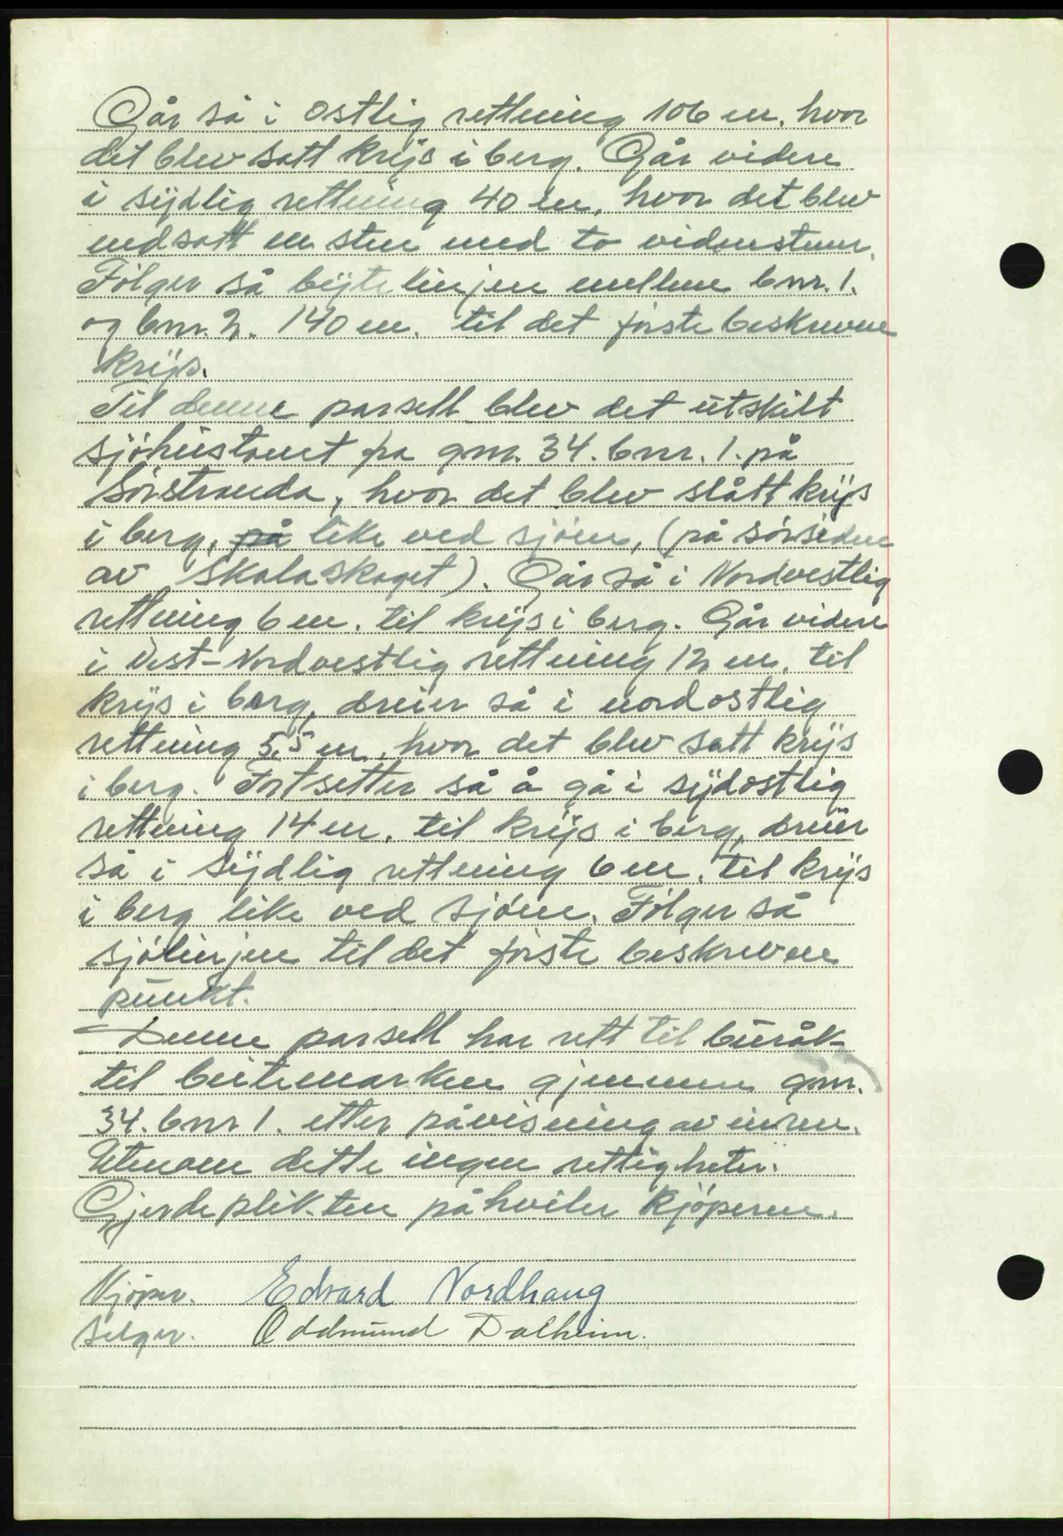 Går så i østlig rettning 106 m. hvor
det blev satt krys i berg. Går videre
i sydlig rettning 40 m. hvor det blev
nedsatt en sten med to vidnestener.
Følger så bytelinjen mellem bnr. 1.
og bnr. 2. 140 m. til det første beskrevne
krys.
Til denne parsell blev det utskilt
sjøhustomt fra gnr. 34. bnr. 1. på
Sørstranda, hvor det blev slått krys
i berg, på like ved sjøen, (på sørsiden
av Skalaskaget). Går så i Nordvestlig
rettning 6 m. til krys i berg. Går videre
i Vest-Nordvestlig rettning 12 m. til
krys i berg, dreier så i nordøstlig
rettning 5,5 m. hvor det blev satt krys
i berg. Fortsetter så å gå i sydøstlig
rettning 14 m. til krys i berg, dreier
så i sydlig rettning 6 m. til krys
i berg like ved sjøen. Følger så
sjølinjen til det første beskrevne
punkt.
Denne parsell har rett til buråk
til beitemarken gjennem gnr.
34. bnr 1. etter påvisning av eieren.
Utenom dette ingen rettigheter.
Gjerdeplikten påhviler kjøperen.
Kjøper. Edvard Nordhaug
Selger. Oddmund Dalheim.